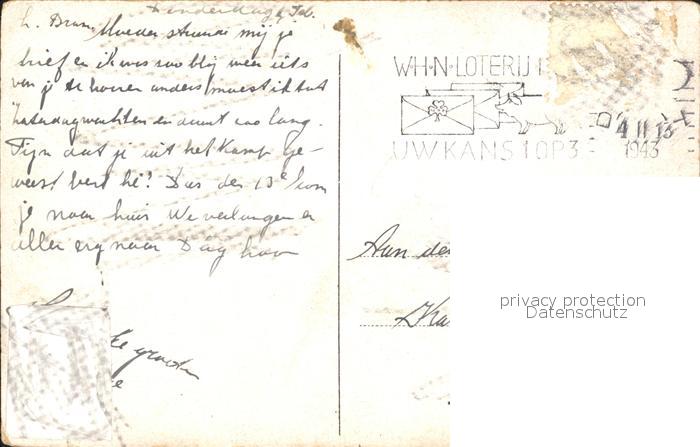 Donderdag 4 Feb.
L. Bram, Moeder stuurde mij je
brief en ik was zoo blij weer iets
van je te hooren anders moest ik tot
Zaterdag wachten en duurt zoo lang.
Fijn dat je uit het kamp ge-
weest bent hè! Dus den 13e kom
je naar huis We verlangen er
allen erg naar Dag hoor
WHN LOTERIJ
UW KANS 1 OP 3
4 II 13
1943
Aan de
privacy protection
Datenschutz